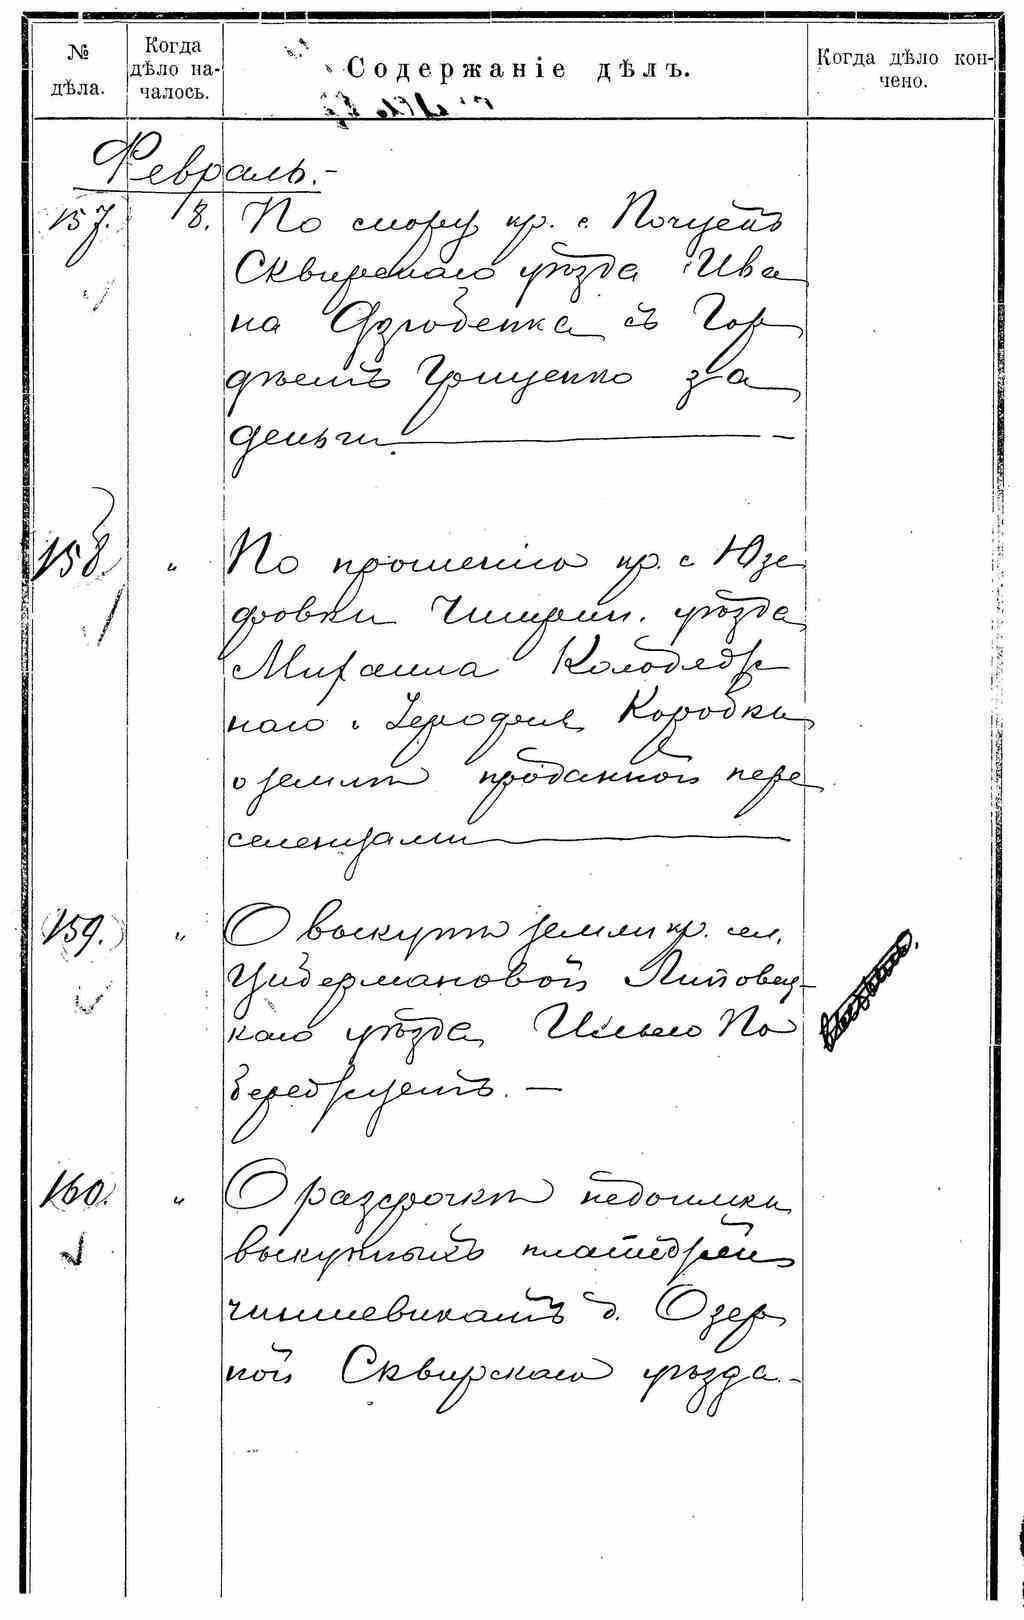 № дѣла.
Когда дѣло на-
чалось.
Содержаніе дѣлъ.
Когда дѣло кон-
чено.
Февраль.-
157. 8. По спору кр. с. Почуекъ
Сквирскаго уѣзда Ива
на Дзюбенка съ Гор
дѣемъ Грищенко за
деньги.
158 " По прошенію кр. с. Юзе
фовки Чигрин. уѣзда
Михаила Колодяж
наго и Коробки
о землѣ проданной пере
селенцами
159. " О выкупѣ земли кр. сел.
Цибермановой Липовец-
каго уѣзда Ильею По
бережцемъ. —
160. " О разсрочкѣ недоимки
выкупныхъ платежей
чиншевикамъ д. Озер
ной Сквирскаго уѣзда.-